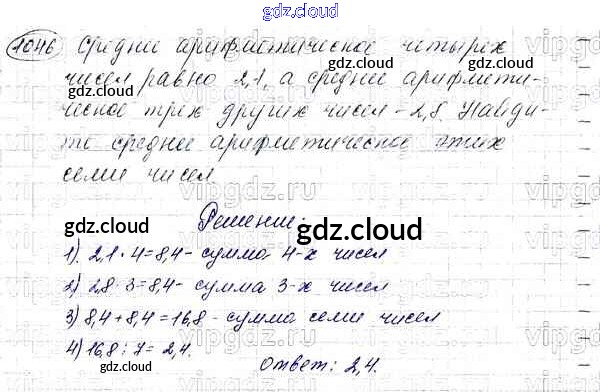 gdz.cloud
1046 Среднее арифметическое четырёх
чисел равно 2,1, а среднее арифмети-
ческое трёх других чисел - 2,8. Найди-
те среднее арифметическое этих
семи чисел
gdz.cloud gdz.cloud
Решение:
gdz.cloud gdz.cloud
1) 2,1 · 4 = 8,4 - сумма 4-х чисел
2) 2,8 · 3 = 8,4 - сумма 3-х чисел
3) 8,4 + 8,4 = 16,8 - сумма семи чисел
4) 16,8 : 7 = 2,4.
Ответ: 2,4.
gdz.cloud gdz.cloud